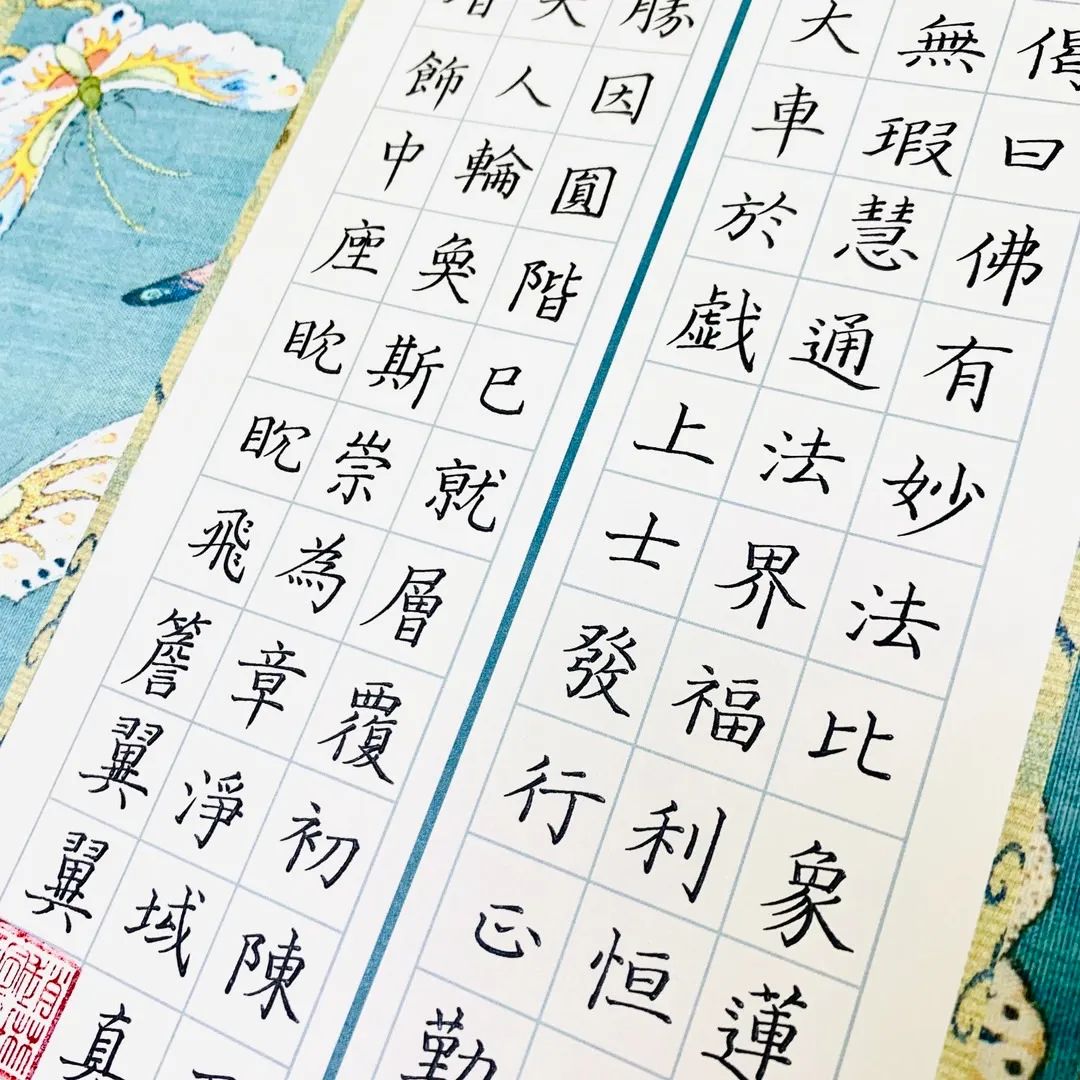 偈曰佛有妙法比象蓮
無瑕慧通法界福利恒
大車於戯上士發行正勤
勝因圓階已就層覆初陳
人輪奐斯崇為章淨域
飾中座眈眈飛簷翼翼真